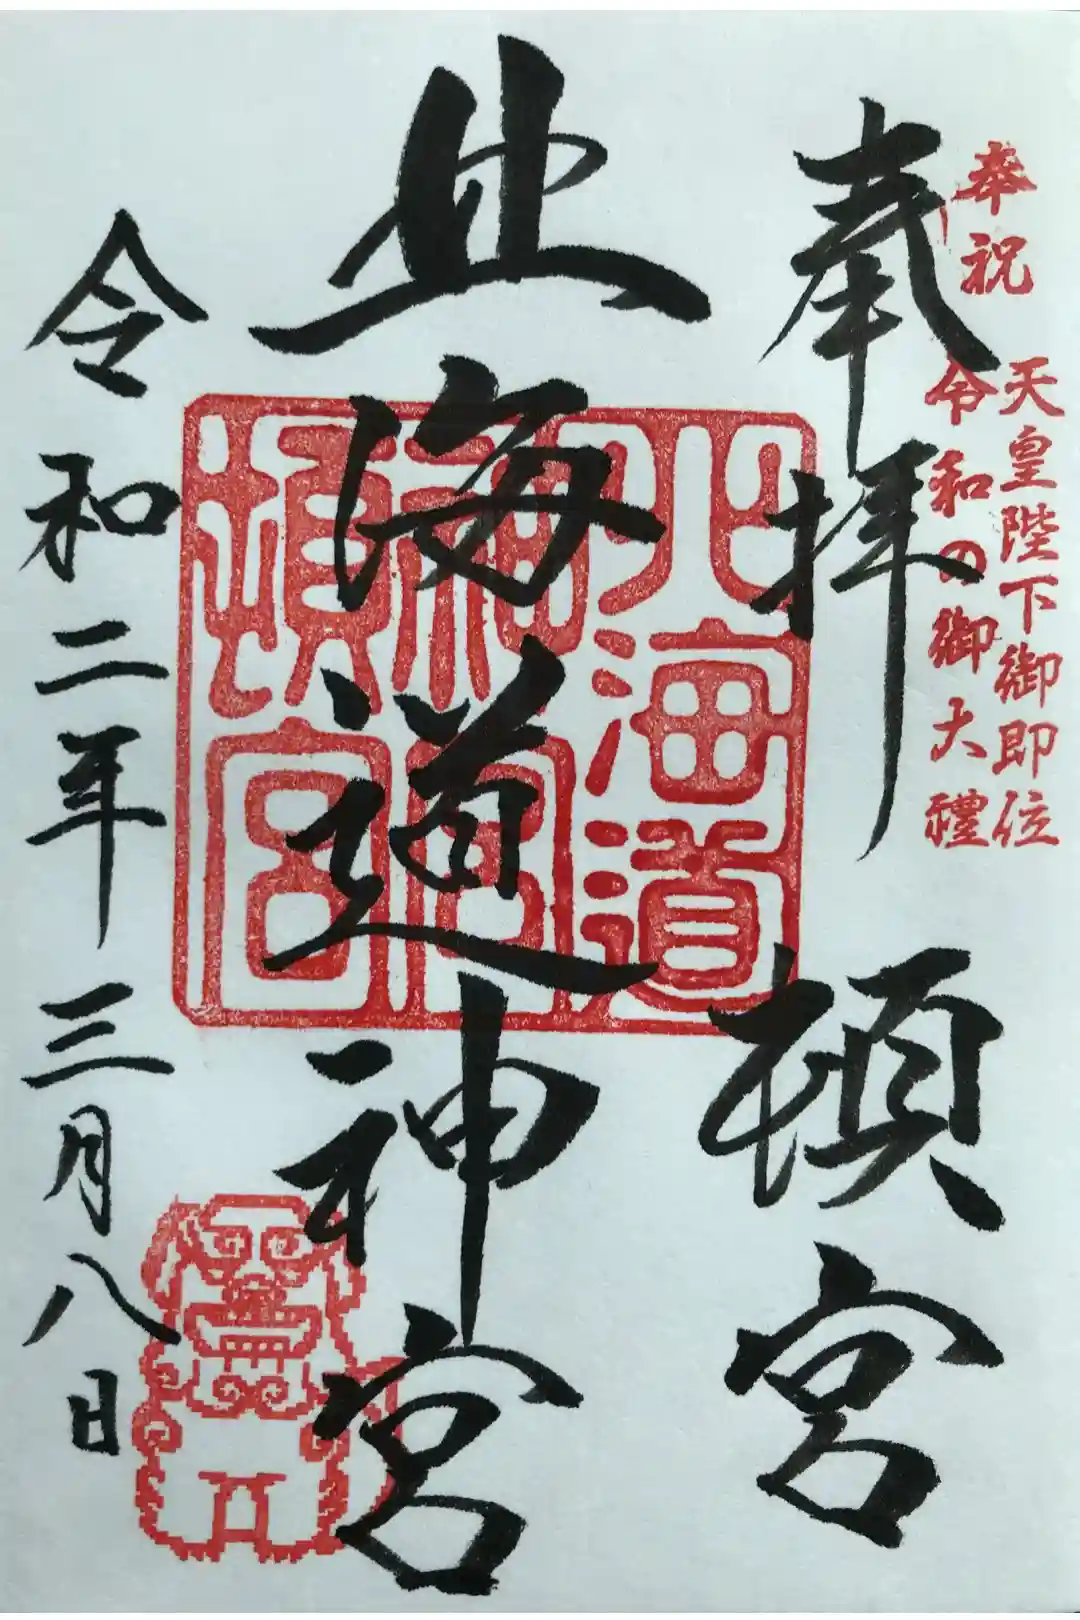 奉祝
天皇陛下御即位
令和の御大禮
奉拝
頓宮
北海道神宮
北海道
神宮
頓宮
令和二年三月八日